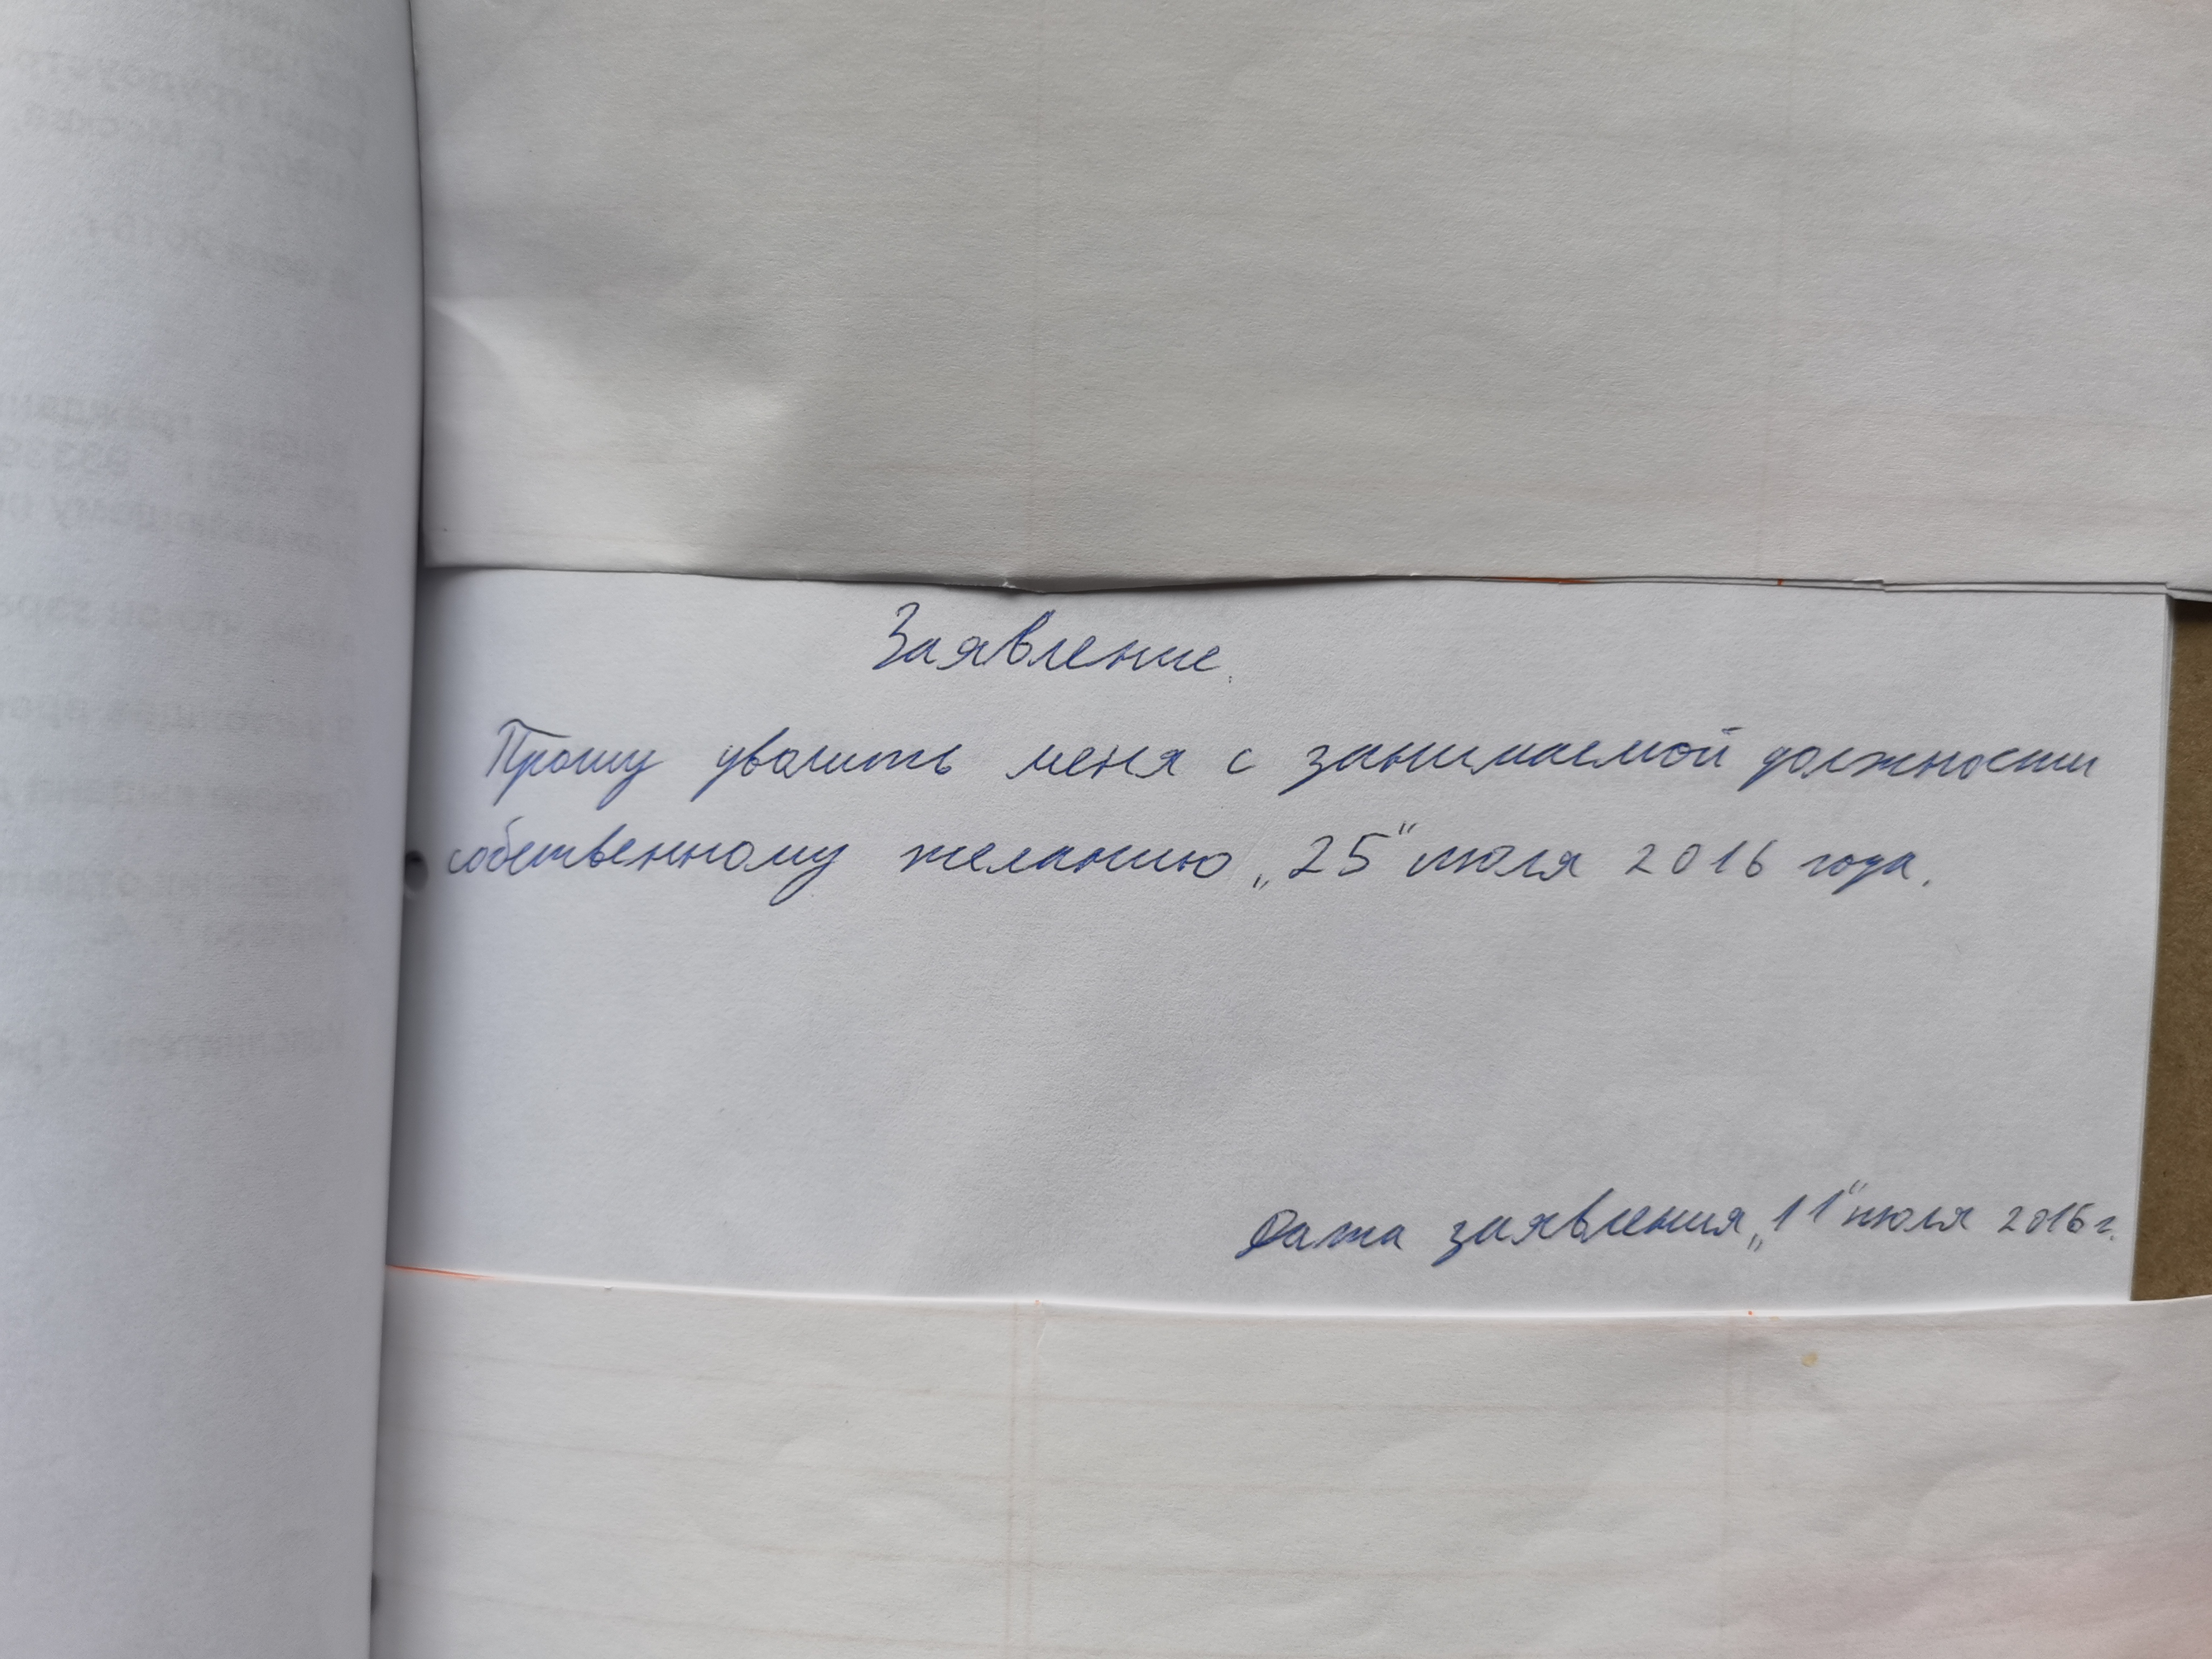 Заявление.
Прошу уволить меня с занимаемой должности
собственному желанию „25" июля 2016 года.
Дата заявления „11" июля 2016 г.